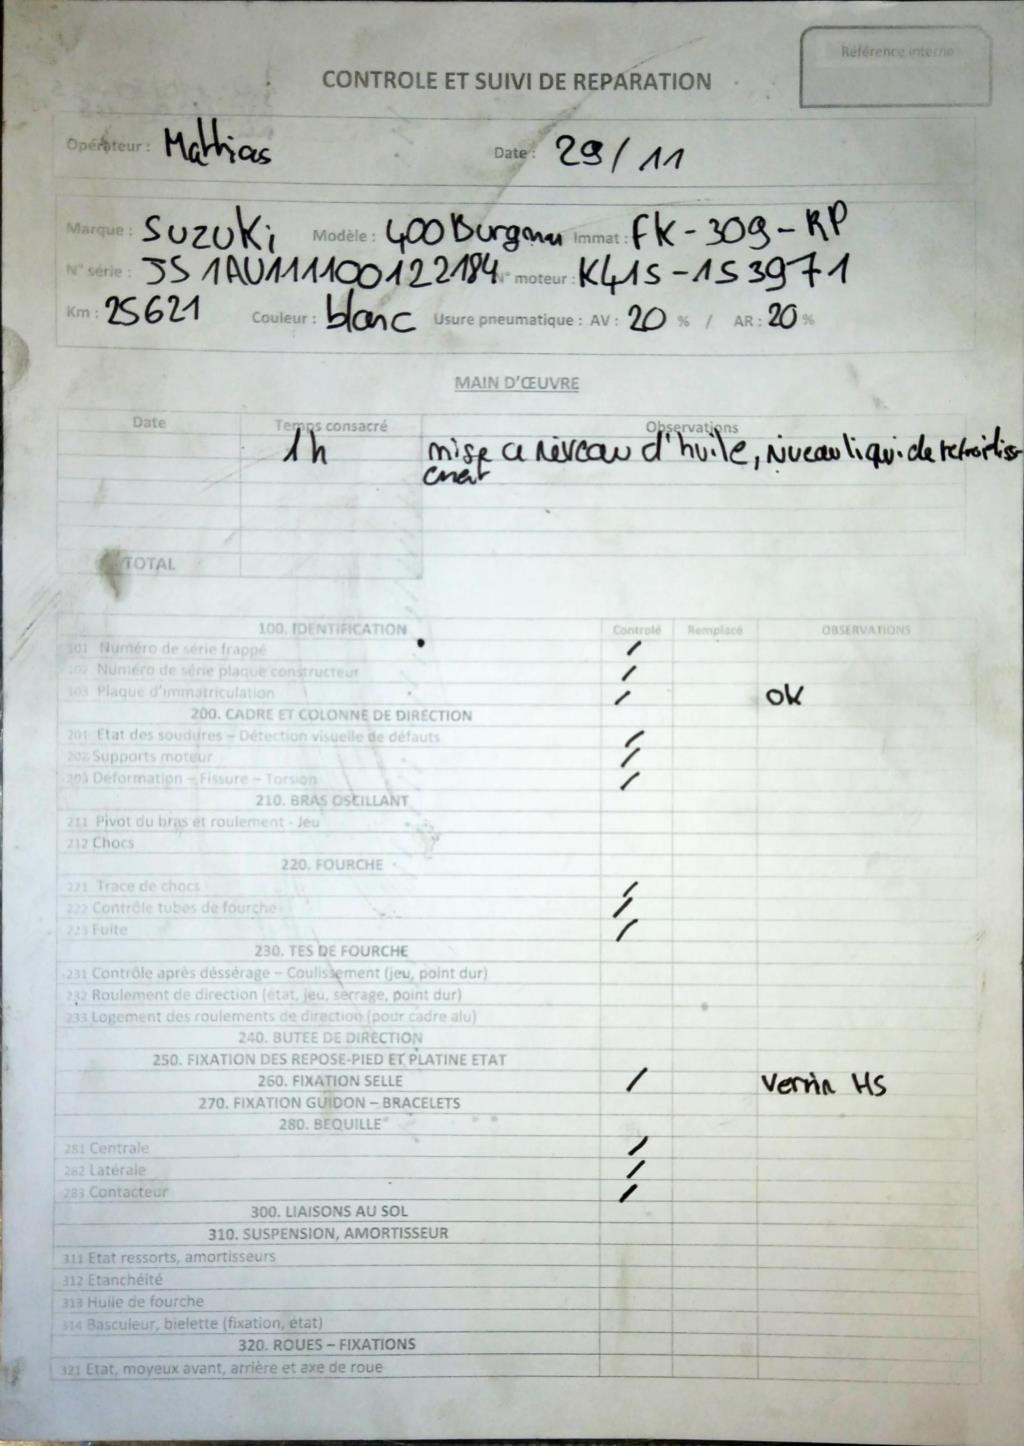 Référence interne
CONTROLE ET SUIVI DE REPARATION
Opérateur : Mathias Date : 29/11
Marque : SUZUKi Modèle : 400 Burgman Immat : FK-309-RP
N° série : JS1AU111100122184 N° moteur : K41S-153971
Km : 25621 Couleur : blanc Usure pneumatique : AV : 20 % / AR : 20 %
MAIN D'ŒUVRE
Date Temps consacré Observations
1h mise a niveau d'huile, niveau liquide refroidiss
ement
TOTAL
100. IDENTIFICATION Controlé Remplacé OBSERVATIONS
101 Numéro de série frappé /
102 Numéro de série plaque constructeur /
103 Plaque d'immatriculation / OK
200. CADRE ET COLONNE DE DIRECTION
201 Etat des soudures – Détection visuelle de défauts /
202 Supports moteur /
203 Déformation – Fissure – Torsion /
210. BRAS OSCILLANT
211 Pivot du bras et roulement - Jeu
212 Chocs
220. FOURCHE
221 Trace de chocs /
222 Contrôle tubes de fourche /
223 Fuite /
230. TES DE FOURCHE
231 Contrôle après déssérage – Coulissement (jeu, point dur)
232 Roulement de direction (état, jeu, serrage, point dur)
233 Logement des roulements de direction (pour cadre alu)
240. BUTEE DE DIRECTION
250. FIXATION DES REPOSE-PIED ET PLATINE ETAT
260. FIXATION SELLE / Verrin HS
270. FIXATION GUIDON – BRACELETS
280. BEQUILLE
281 Centrale /
282 Latérale /
283 Contacteur /
300. LIAISONS AU SOL
310. SUSPENSION, AMORTISSEUR
311 Etat ressorts, amortisseurs
312 Etanchéité
313 Huile de fourche
314 Basculeur, bielette (fixation, état)
320. ROUES – FIXATIONS
321 Etat, moyeux avant, arrière et axe de roue